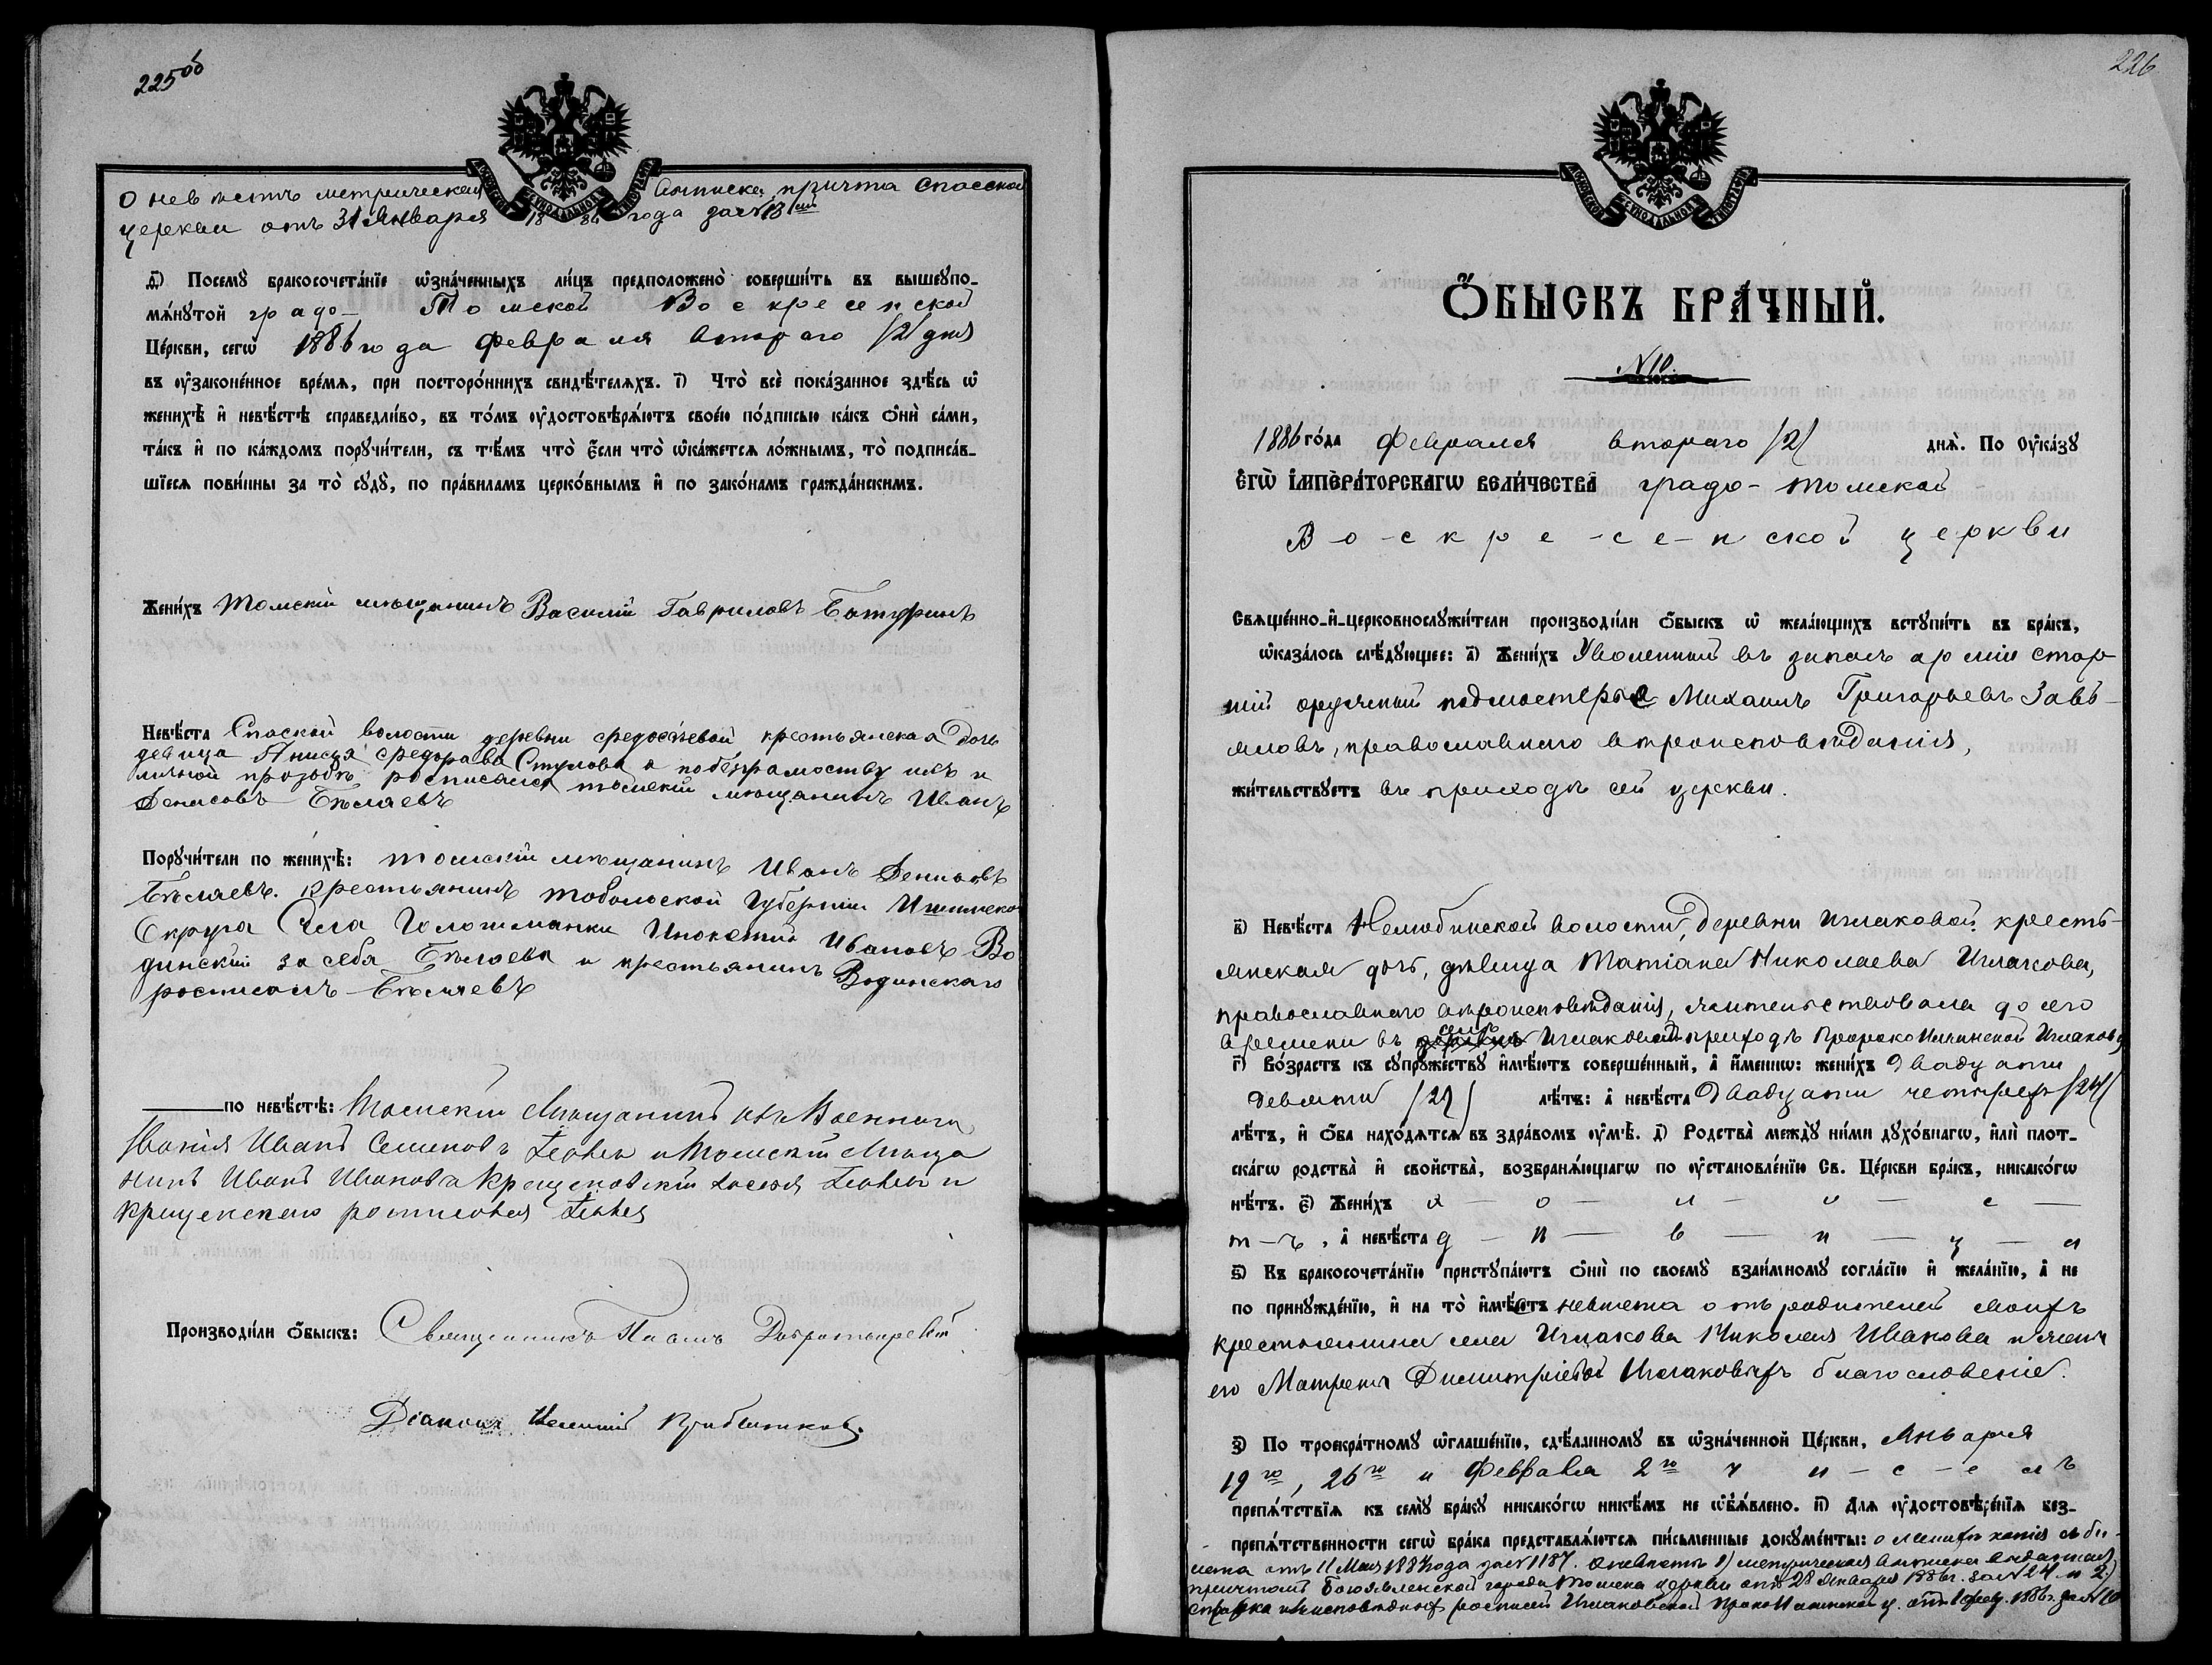 225об
О невестѣ метрическая выписка причта Спасской
церкви отъ 31 Января 1886 года за № 13
МОСКОВСКОЙ СѴНОДАЛЬНОЙ ТИПОГРАФІИ
д҃) Посемꙋ̀ бракосочета́нїе ѡ҆зна́ченныхъ ли́цъ предположено̀ соверши́ть въ вышеꙋпо-
мѧ́нꙋтой градо- Томской Воскресенской
Це́ркви, сегѡ̀ 1886 года Февраля втораго /2/ дня
въ ᲂу҆законе́нное вре́мѧ, при посторо́ннихъ свидѣ́телѧхъ. і҃) Что̀ всѐ пока́занное здѣ́сь ѡ҆
женихѣ̀ и҆ невѣ́стѣ справедли́во, въ то́мъ ᲂу҆достовѣрѧ́ютъ свое́ю по́дписью ка́къ ѻ҆нѝ са́ми,
та́къ и҆ по ка́ждомъ порꙋчи́тели, съ тѣ́мъ что̀ є҆́сли что̀ ѡ҆ка́жетсѧ ло́жнымъ, то̀ подписа́в-
шїесѧ пови́нны за то̀ сꙋдꙋ̀, по пра́виламъ церко́внымъ и҆ по зако́намъ гражда́нскимъ.
Жени́хъ Томскій мѣщанинъ Василій Гавриловъ Батуринъ
Невѣ́ста Спаской волости деревни Федосѣевой крестьянская дочь
девица Анисья Федорова Стулова а по безграмоству ихъ и
личной прозбѣ росписался томскій мѣщанинъ Иванъ
Денисовъ Бѣляевъ
Порꙋчи́тели по женихѣ̀: Томскій мѣщанинъ Иванъ Денисовъ
Бѣляевъ. Крестьянинъ Тобольской Губерніи Ишимско
Округа Села Голошманки Инокетий Ивановъ Во
динскій за себя Бѣляева и крестьянинъ Водинскаго
росписалъ Бѣляевъ
по невѣ́стѣ: Томскій Мѣщанинъ изъ Военнаго
Званія Иванъ Семеновъ и Томскій Мѣща
нинъ Иванъ Иванова
росписовал
Производи́ли ѻ҆́быскъ: Священникъ Павелъ Добротворскій
Діаконъ
226
МОСКОВСКОЙ СѴНОДАЛЬНОЙ ТИПОГРАФІИ
Ѻ҆́БЫСКЪ БРА́ЧНЫЙ.
№ 10.
1886 го́да Февраля втораго /2/ днѧ̀. По ᲂу҆ка́зꙋ
Є҆ГѠ̀ І҆МПЕРА́ТОРСКАГѠ ВЕЛИ́ЧЕСТВА градо- Томской
Во-скре-се-нской церкви
Свѧще́нно-и҆-церковнослꙋжи́тели производи́ли ѻ҆́быскъ ѡ҆ жела́ющихъ встꙋпи́ть въ бра́къ,
ѡ҆каза́лось слѣ́дꙋющее: а҃) Жени́хъ Уволенный въ запасъ арміи стар
шій оруженый подмастерье Михаилъ Григорьевъ Завь-
яловъ, православнаго вѣроисповѣданія,
жи́тельствꙋетъ въ приходѣ сей церкви.
в҃) Невѣ́ста Нелюбинской волости, деревни Иглаковой, кресть-
янская дочь, дѣвица Татіана Николаева Иглакова,
православнаго вѣроисповѣданія, жительствовала до сего
времени въ селѣ Иглаковѣ приходѣ Пророко Ильинской Иглаков
г҃) Во́зрастъ къ сꙋпрꙋ́жествꙋ и҆мѣ́ютъ соверше́нный, а҆ и҆́менно: жени́хъ двадцати
девяти /29/ лѣ́тъ: а҆ невѣ́ста двадцати четырехъ /24/
лѣ́тъ, и҆ ѻ҆́ба нахо́дѧтсѧ въ здра́вомъ ᲂу҆мѣ̀. д҃) Родства̀ междꙋ ни́ми дꙋхо́внагѡ, и҆лѝ плот-
ска́гѡ родства̀ и҆ сво́йства, возбранѧ́ющагѡ по ᲂу҆становле́нїю Св. Це́ркви бра́къ, никако́гѡ
нѣ́тъ. є҃) Жени́хъ х — о — л — о — с —
т — ъ, а҆ невѣ́ста д — ѣ — в — и — ц — а
ѕ҃) Къ бракосочета́нїю пристꙋпа́ютъ ѻ҆нѝ по своемꙋ̀ взаи́мномꙋ согла́сїю и҆ жела́нїю, а҆ не
по принꙋжде́нїю, и҆ на то̀ и҆мѣ́етъ невѣста отъ родителей своихъ
крестьянина села Иглакова Николая Иванова и жены
его Матрены Димитріевой Иглаковыхъ благословеніе.
з҃) По троекра́тномꙋ ѡ҆глаше́нїю, сдѣ́ланномꙋ въ ѡ҆зна́ченной Це́ркви, Января
19го, 26го и Февраля 2го ч и - с - е лъ
препѧ́тствїѧ къ семꙋ̀ бра́кꙋ никако́гѡ никѣ́мъ не ѡ҆б̾ѧ́влено. и҃) Длѧ ᲂу҆достовѣре́нїѧ без-
препѧ́тственности сегѡ̀ бра́ка представлѧ́ютсѧ пи́сьменные докꙋме́нты: о женихѣ копія съ би-
лета отъ 11 Мая 1884 года за № 1187. О невѣстѣ 1) метрическая выписка выданная
причтомъ Богоявленской города Томска церкви отъ 28 Января 1886 г. за № 24 и 2)
справка изъ исповѣдныхъ росписей Иглаковской Проко Ильинской ц. отъ 1 февр. 1886 г. за № 10